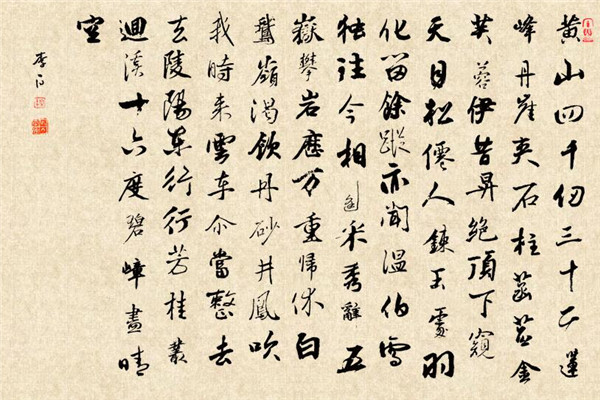 黄山四千仞三十二蓮
峰丹崖夾石柱菡萏金
芙蓉伊昔昇絕頂下窺
天目松僊人鍊玉處羽
化留餘蹤亦聞温伯雪
独往今相逢采秀辭五
嶽攀岩歷万重歸休白
鵞嶺渴飲丹砂井鳳吹
我時来雲车尒當整去
去陵陽東行行芳桂叢
迴溪十六度碧嶂盡晴
空
李白